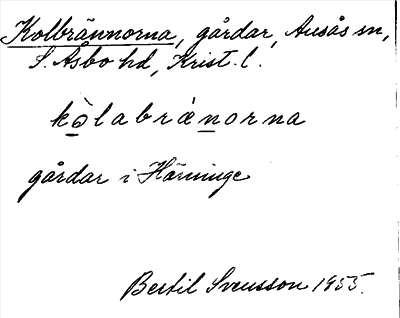 Kolbrännorna, gårdar, Ausås sn,
S. Åsbo hd, Krist. l.
kòlabrǽnorna
gårdar i Härninge
Bertil Svensson 1955.